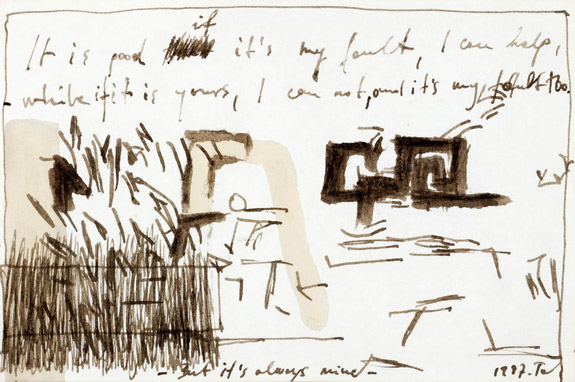 It is good if it's my fault, I can help,
while if it is yours, I can not, and it's my fault too.
- But it's always mine -
1997.